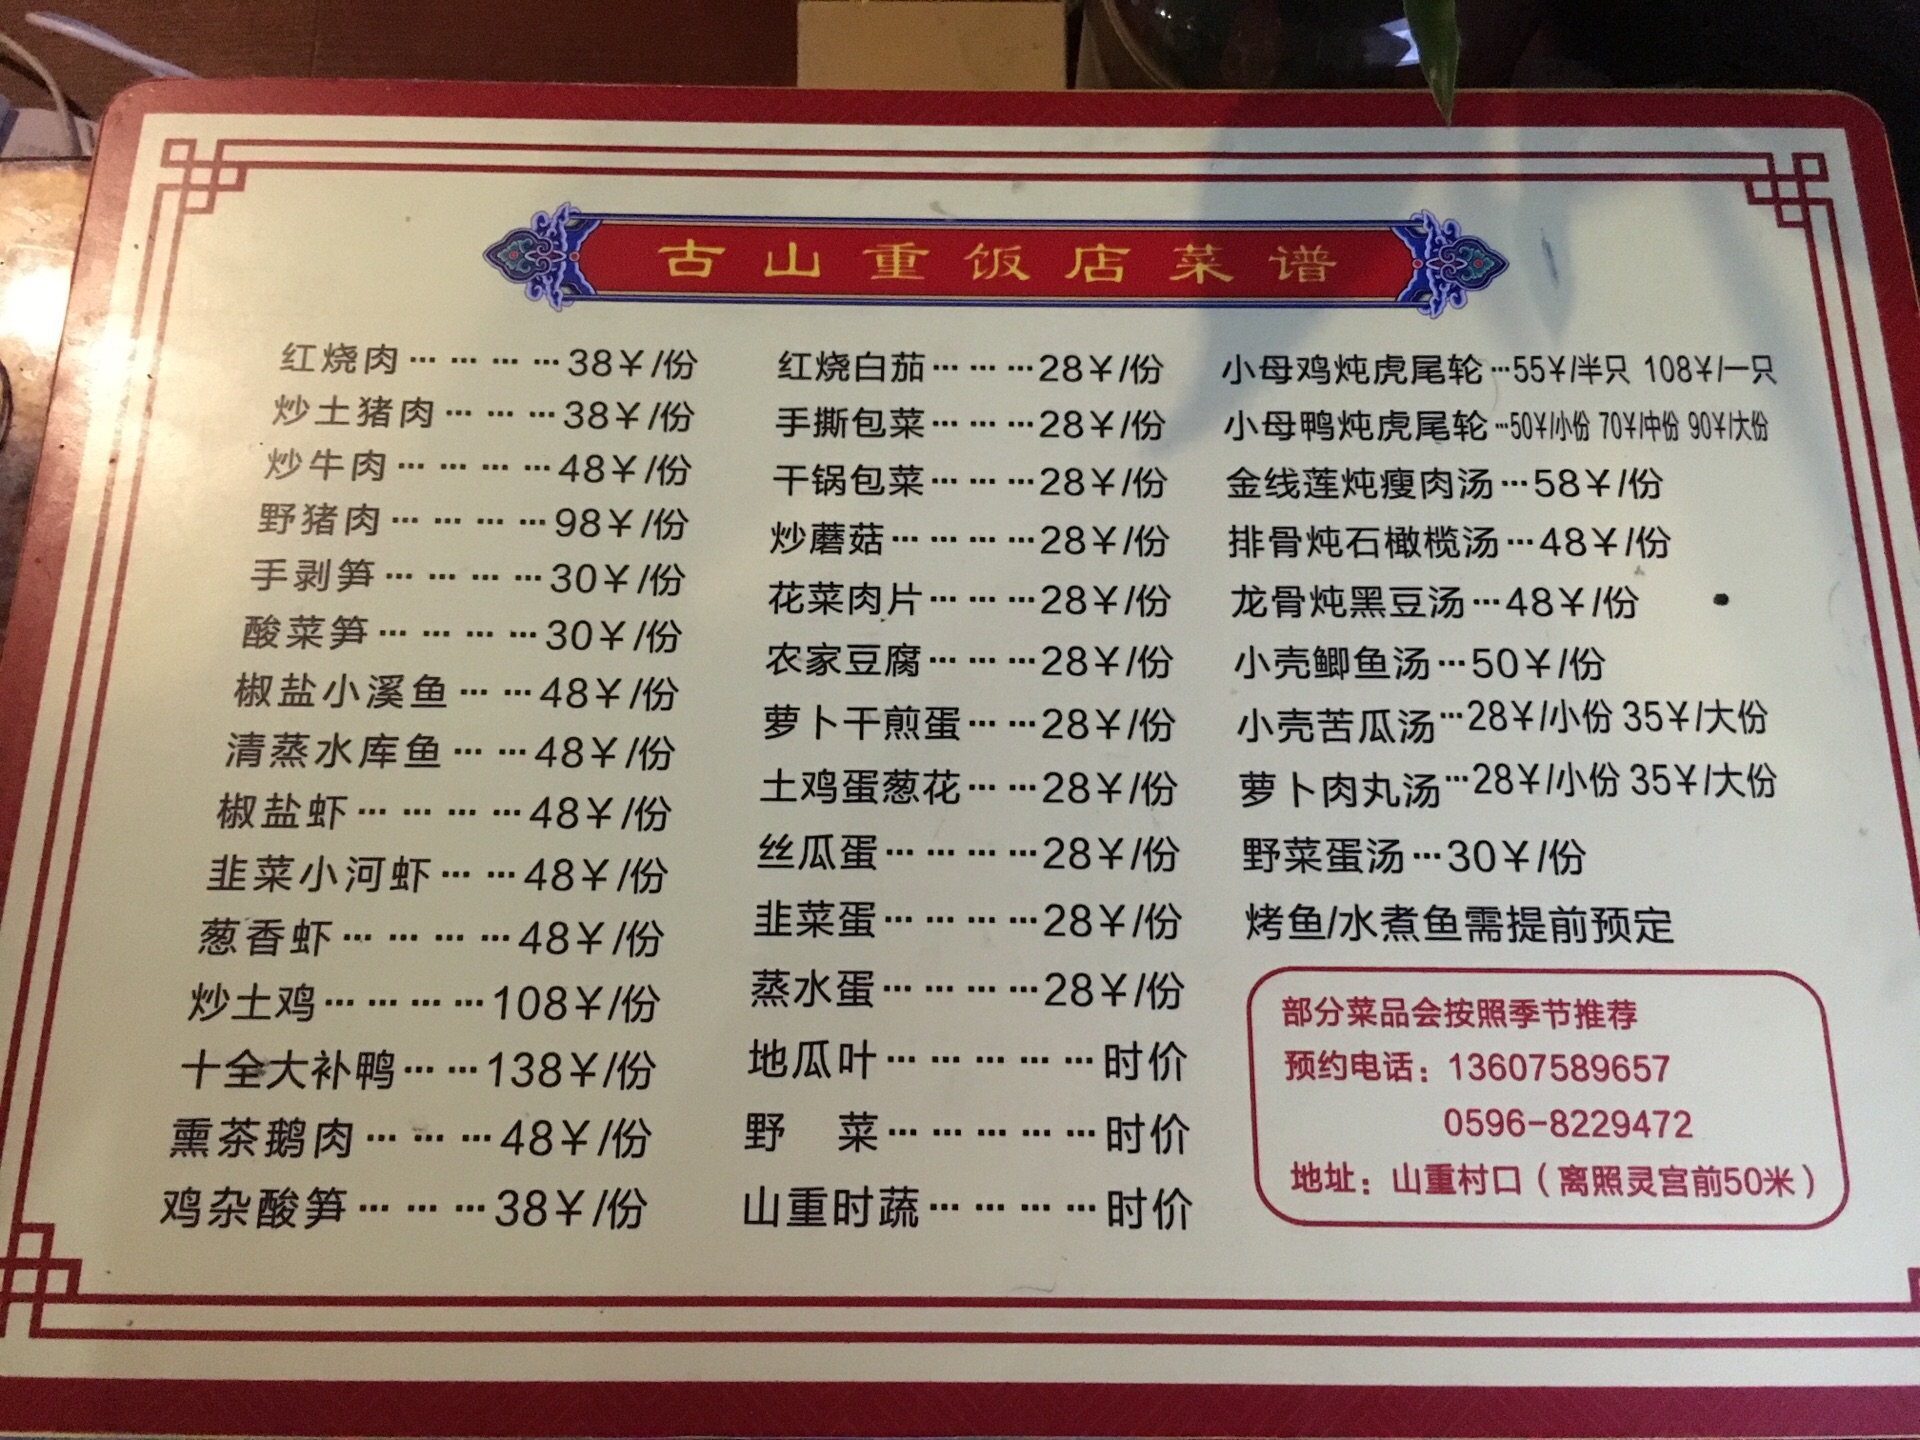 古山重饭店菜谱
红烧肉… … … …38¥/份
炒土猪肉… … …38¥/份
炒牛肉… … … …48¥/份
野猪肉… … … …98¥/份
手剥笋… … … …30¥/份
酸菜笋… … … …30¥/份
椒盐小溪鱼… …48¥/份
清蒸水库鱼… …48¥/份
椒盐虾… … … …48¥/份
韭菜小河虾… …48¥/份
葱香虾… … … …48¥/份
炒土鸡… … … …108¥/份
十全大补鸭… …138¥/份
熏茶鹅肉… … …48¥/份
鸡杂酸笋… … …38¥/份
红烧白茄… … …28¥/份
手撕包菜… … …28¥/份
干锅包菜… … …28¥/份
炒蘑菇… … … …28¥/份
花菜肉片… … …28¥/份
农家豆腐… … …28¥/份
萝卜干煎蛋… …28¥/份
土鸡蛋葱花… …28¥/份
丝瓜蛋… … … …28¥/份
韭菜蛋… … … …28¥/份
蒸水蛋… … … …28¥/份
地瓜叶… … … … …时价
野　菜… … … … …时价
山重时蔬… … … …时价
小母鸡炖虎尾轮…55¥/半只 108¥/一只
小母鸭炖虎尾轮…50¥/小份 70¥/中份 90¥/大份
金线莲炖瘦肉汤…58¥/份
排骨炖石橄榄汤…48¥/份
龙骨炖黑豆汤…48¥/份
小壳鲫鱼汤…50¥/份
小壳苦瓜汤…28¥/小份 35¥/大份
萝卜肉丸汤…28¥/小份 35¥/大份
野菜蛋汤…30¥/份
烤鱼/水煮鱼需提前预定
部分菜品会按照季节推荐
预约电话：13607589657
0596-8229472
地址：山重村口（离照灵宫前50米）